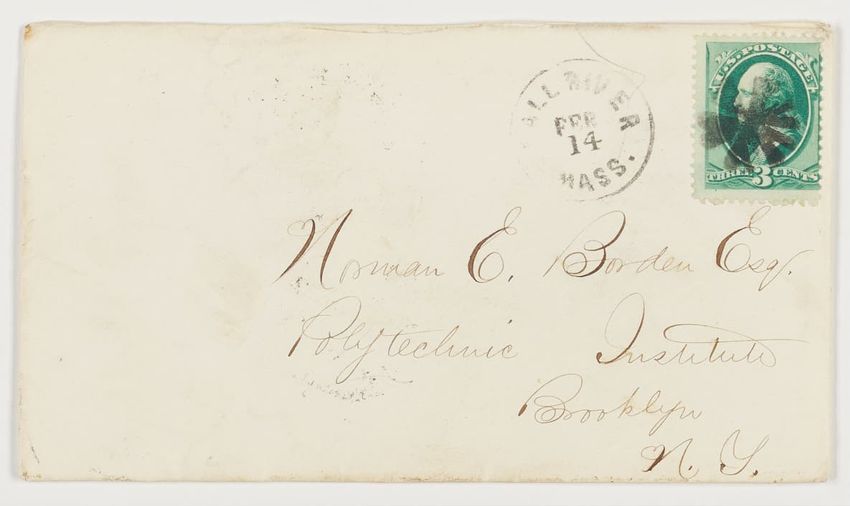 FALL RIVER
FEB
14
MASS.
U.S. POSTAGE
THREE 3 CENTS
Norman E. Borden Esq.
Polytechnic Institute
Brooklyn
N. Y.